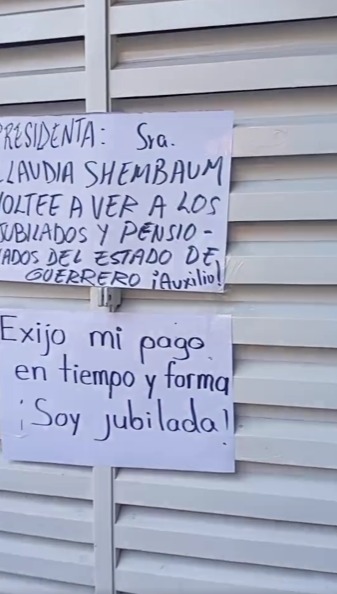 PRESIDENTA: Sra.
CLAUDIA SHEMBAUM
VOLTEE A VER A LOS
JUBILADOS Y PENSIO-
NADOS DEL ESTADO DE
GUERRERO ¡Auxilio!
Exijo mi pago
en tiempo y forma
¡Soy jubilada!